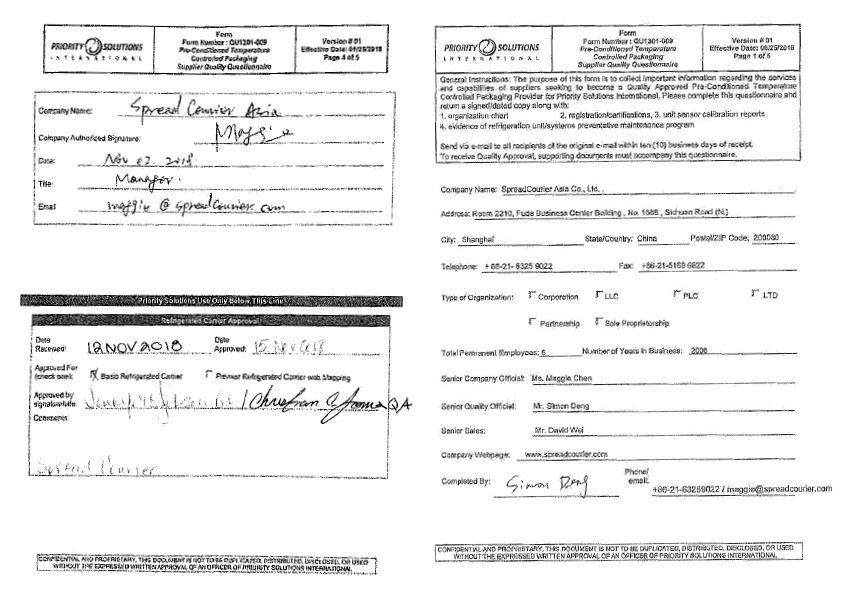 PRIORITY SOLUTIONS
INTERNATIONAL
Form
Form Number : QU1301-009
Pre-Conditioned Temperature
Controlled Packaging
Supplier Quality Questionnaire
Version # 01
Effective Date: 06/25/2018
Page 4 of 5
Company Name: Spread Courier Asia
Company Authorized Signature: Maggie
Date: Nov 02. 2018.
Title: Manager.
Email maggie @ spreadcourier.com
Priority Solutions Use Only Below This Line
Refrigerated Carrier Approval
Date Received: 12 NOV 2018 Date Approved: 15 Nov 2018
Approved For (check one): Basis Refrigerated Carrier Premier Refrigerated Carrier with Mapping
Approved by signature/title: QA
Comments:
Spread Courier
CONFIDENTIAL AND PROPRIETARY, THIS DOCUMENT IS NOT TO BE DUPLICATED, DISTRIBUTED, DISCLOSED, OR USED
WITHOUT THE EXPRESSED WRITTEN APPROVAL OF AN OFFICER OF PRIORITY SOLUTIONS INTERNATIONAL
PRIORITY SOLUTIONS
INTERNATIONAL
Form
Form Number : QU1301-009
Pre-Conditioned Temperature
Controlled Packaging
Supplier Quality Questionnaire
Version # 01
Effective Date: 06/25/2018
Page 1 of 5
General Instructions: The purpose of this form is to collect important information regarding the services
and capabilities of suppliers seeking to become a Quality Approved Pre-Conditioned Temperature
Controlled Packaging Provider for Priority Solutions International. Please complete this questionnaire and
return a signed/dated copy along with:
1. organization chart 2. registration/certifications, 3. unit sensor calibration reports
4. evidence of refrigeration unit/systems preventative maintenance program
Send via e-mail to all recipients of the original e-mail within ten (10) business days of receipt.
To receive Quality Approval, supporting documents must accompany this questionnaire.
Company Name: SpreadCourier Asia Co., Ltd. .
Address: Room 2210, Fude Business Center Building , No. 1688 , Sichuan Road (N.)
City: Shanghai State/Country: China Postal/ZIP Code: 200080
Telephone: +86-21- 6325 9022 Fax: +86-21-5168 6822
Type of Organization: Corporation LLC PLC LTD
Partnership Sole Proprietorship
Total Permanent Employees: 6 Number of Years in Business: 2006
Senior Company Official: Ms. Maggie Chen
Senior Quality Official: Mr. Simon Deng
Senior Sales: Mr. David Wei
Company Webpage: www.spreadcourier.com
Completed By: Simon Deng Phone/ email: +86-21-63259022 / maggie@spreadcourier.com
CONFIDENTIAL AND PROPRIETARY, THIS DOCUMENT IS NOT TO BE DUPLICATED, DISTRIBUTED, DISCLOSED, OR USED
WITHOUT THE EXPRESSED WRITTEN APPROVAL OF AN OFFICER OF PRIORITY SOLUTIONS INTERNATIONAL